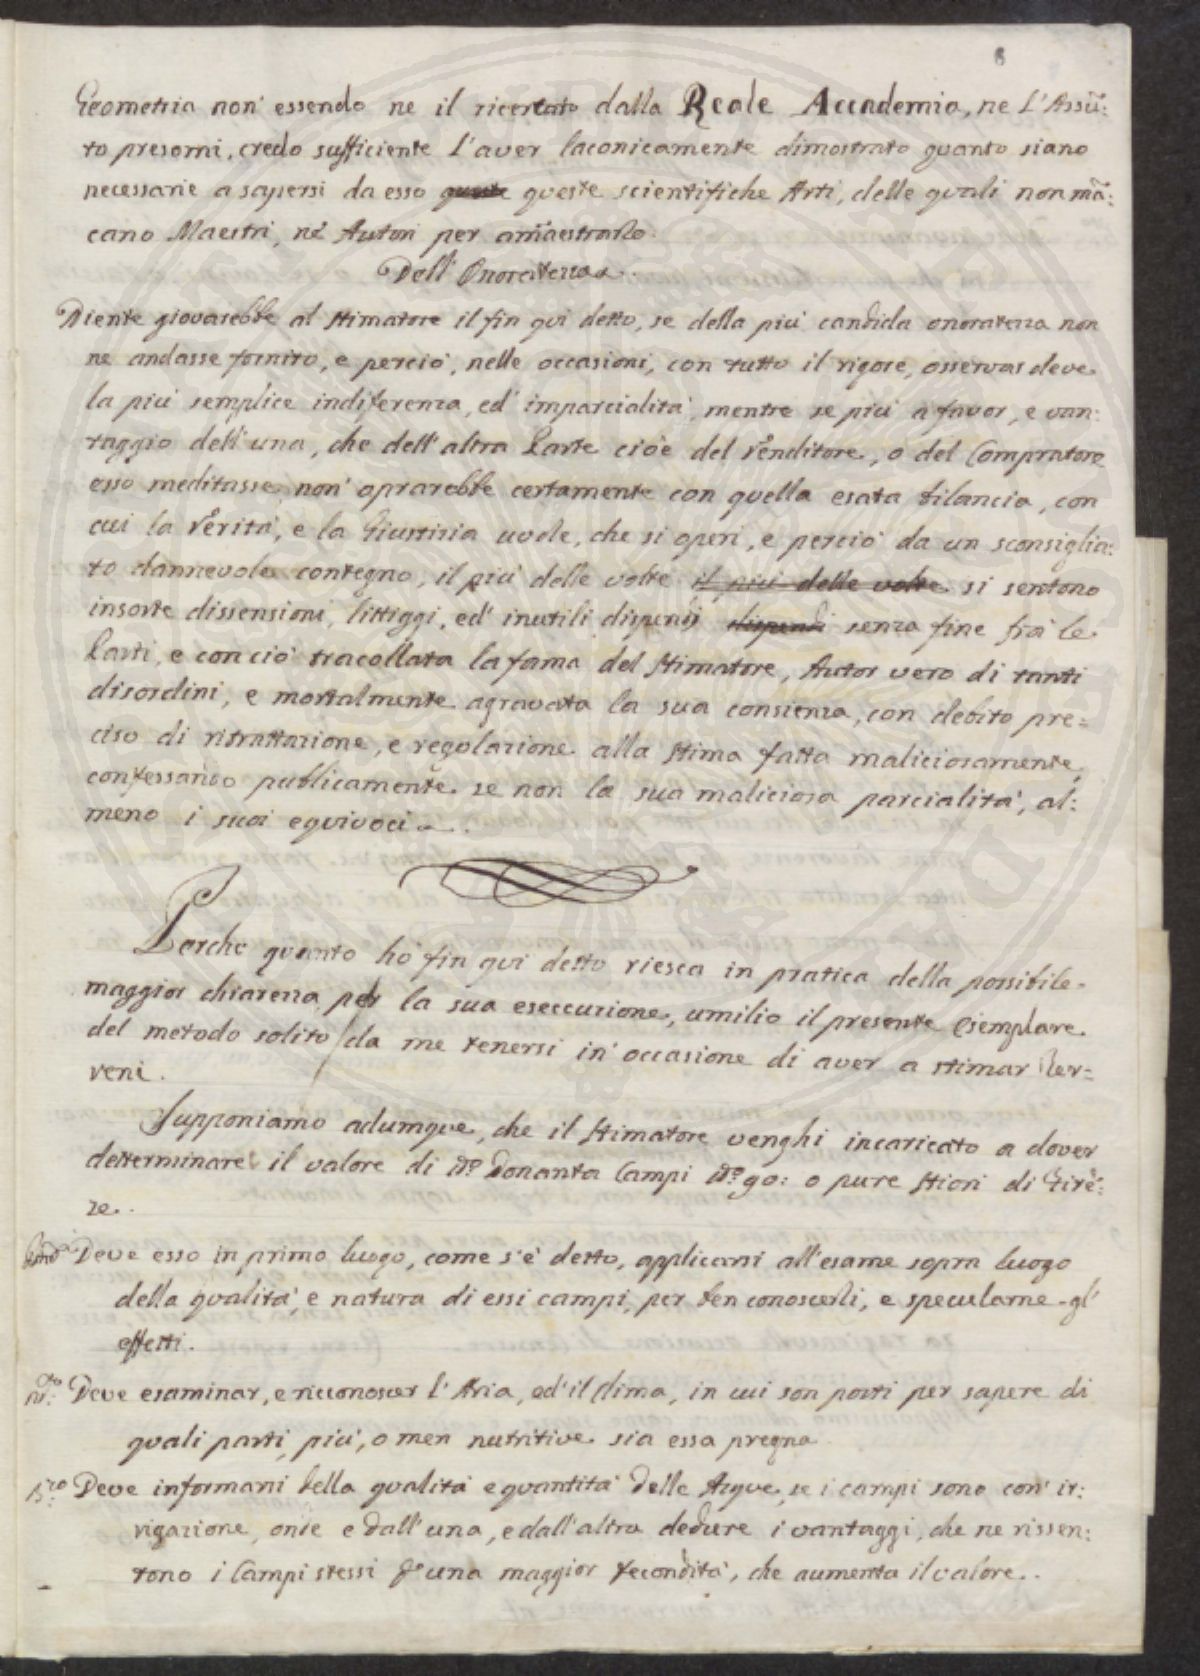 8
Geometria non' essendo ne il ricercato dalla Reale Accademia, ne L'Assũ:
to presomi, credo sufficiente l'aver laconicamente dimostrato quanto siano
necessarie a sapersi da esso queste queste scientifiche Arti, delle quali non mã:
cano Maestri, ne Autori per amaestrarlo.
Dell' Onoratezza.
Niente giovarebbe al Stimatore il fin qui detto, se della più candida onoratezza non
ne andasse fornito, e perciò, nelle occasioni, con tutto il rigore, osservar deve
la più semplice indiferenza, ed' imparcialità, mentre se più a favor, e van:
taggio dell'una, che dell'altra Parte cioè del Venditore, o del Compratore
esso meditasse, non' oprarebbe certamente con quella esata bilancia, con
cui la Verità, e la Giustizia vuole, che si operi, e perciò da un sconsiglia:
to dannevole contegno, il più delle volte il più delle volte si sentono
insorte dissensioni, littiggi, ed' inutili dispendi dispendi senza fine frà le
Parti, e con ciò tracollata la fama del Stimatore, Autor vero di tanti
disordini, e mortalmente agravata la sua consienza, con debito pre=
ciso di ritrattazione, e regolazione alla stima fatta maliciosamente,
confessando publicamente se non la sua maliciosa parcialità, al:
meno i suoi equivoci.
Perche quanto hò fin qui detto riesca in pratica della possibile
maggior chiarezza per la sua eseccuzione, umilio il presente Esemplare
del metodo solito da me tenersi in' occasione di aver a stimar Ter=
reni.
Supponiamo adumque, che il Stimatore venghi incaricato a dover
detterminare il valore di N.o Quaranta Campi N.o 40: o pure Stiori di Firẽ:
ze.
Deve esso in primo luogo, come s'è detto, applicarsi all'esame sopra luogo
della qualità, e natura di essi campi, per ben conoscerli, e specularne gl'
effetti.
Deve esaminar, e riconoscer l'Aria, ed' il Clima, in cui son posti per sapere di
quali parti, più, o men nutritive sia essa pregna
Deve informarsi della qualità e quantità delle Acque, se i campi sono con' ir:
rigazione, onde e dall'una, e dall'altra dedure i vantaggi, che ne rissen:
tono i Campi stessi una maggior fecondità, che aumenta il valore.